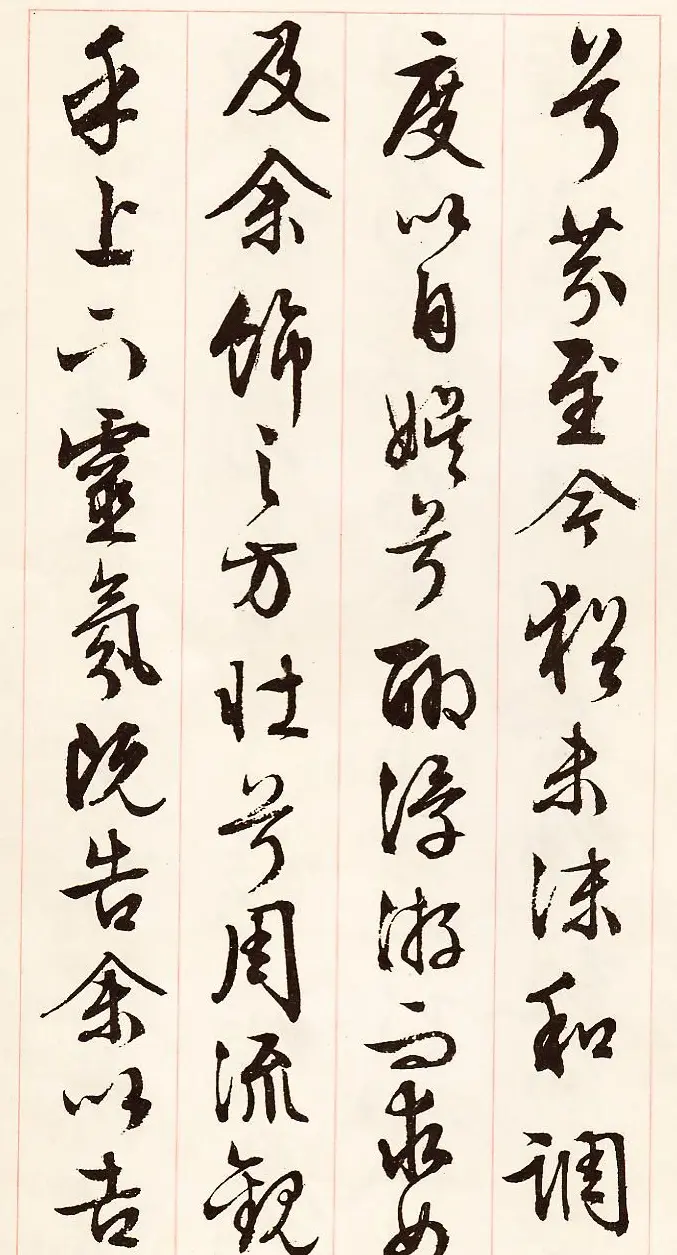 兮芬至今猶未沬和調
度以自娱兮聊浮游而求女
及余飾之方壮兮周流觀
乎上下靈氛既告余以吉